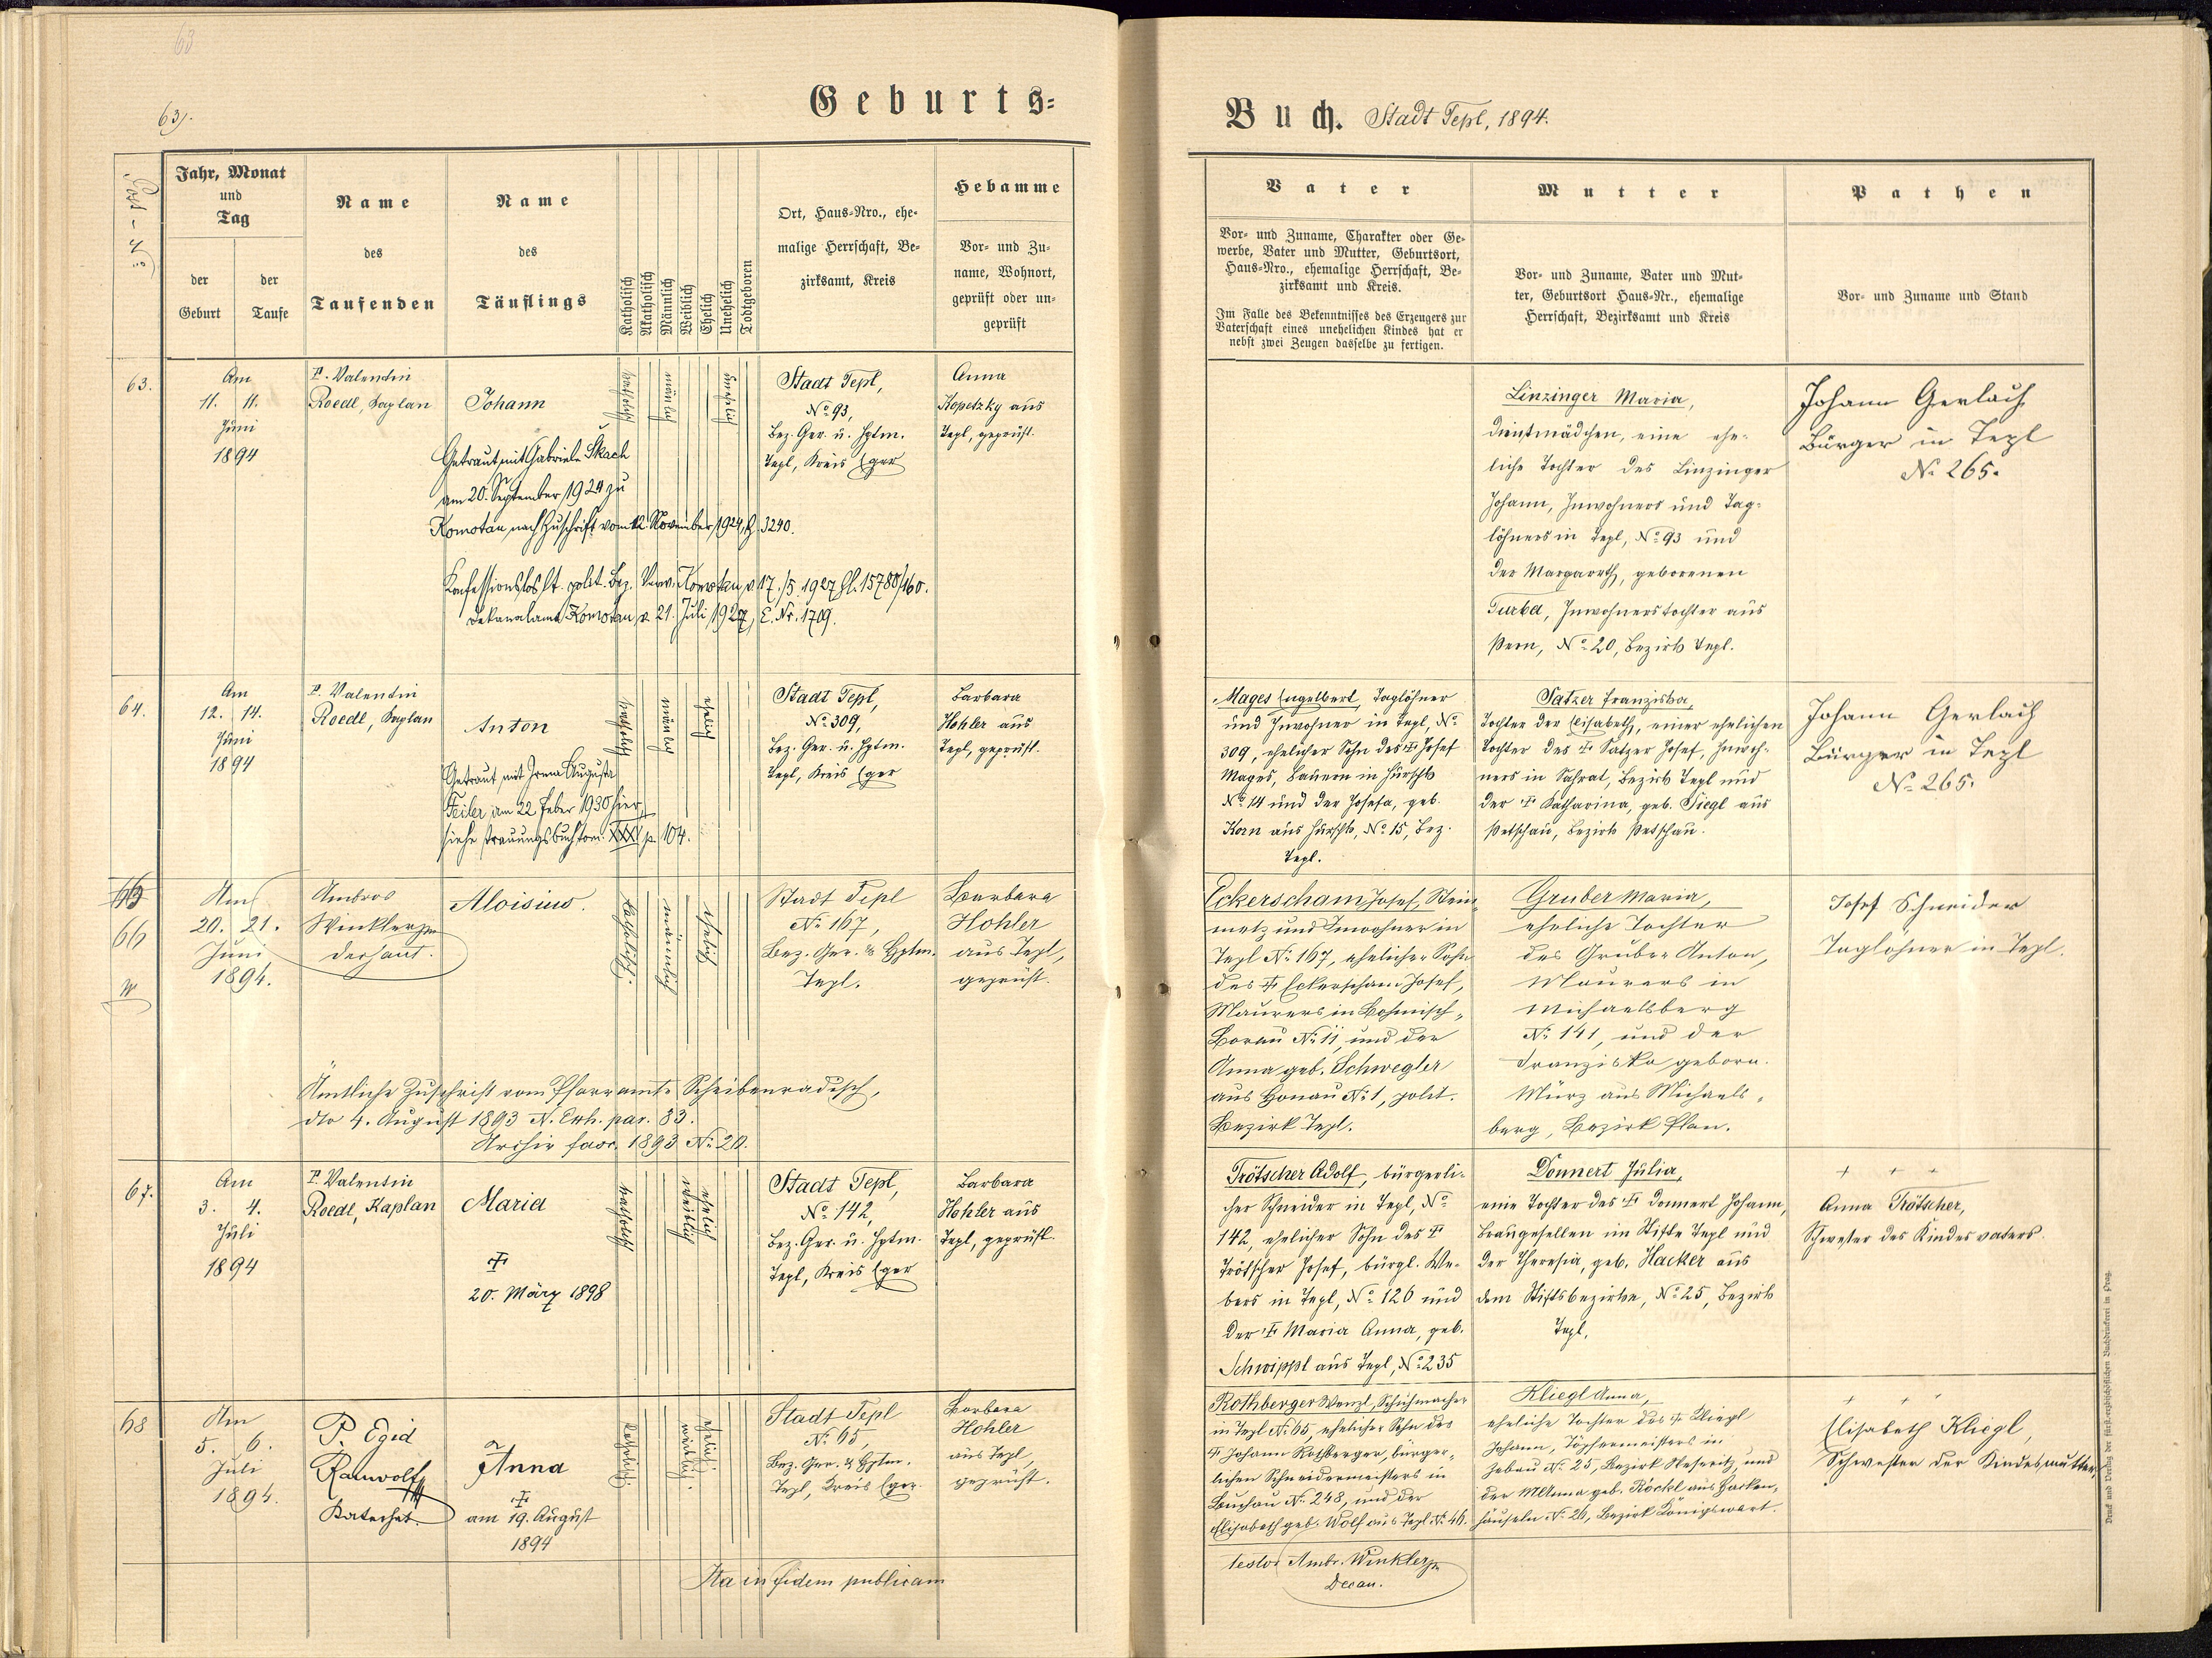 63
63).
Geburts-
Buch. Stadt Tepl, 1894.
Post-No.
Jahr, Monat
und
Tag
der
Geburt
der
Taufe
Name
des
Taufenden
Name
des
Täuflings
Katholisch
Akatholisch
Männlich
Weiblich
Ehelich
Unehelich
Todtgeboren
Ort, Haus-Nro., ehe-
malige Herrschaft, Be-
zirksamt, Kreis
Hebamme
Vor- und Zu-
name, Wohnort,
geprüft oder un-
geprüft
Vater
Vor- und Zuname, Charakter oder Ge-
werbe, Vater und Mutter, Geburtsort,
Haus-Nro., ehemalige Herrschaft, Be-
zirksamt und Kreis.
Im Falle des Bekenntnisses des Erzeugers zur
Vaterschaft eines unehelichen Kindes hat er
nebst zwei Zeugen dasselbe zu fertigen.
Mutter
Vor- und Zuname, Vater und Mut-
ter, Geburtsort Haus-Nr., ehemalige
Herrschaft, Bezirksamt und Kreis
Pathen
Vor- und Zuname und Stand
63.
Am
11. 11.
Juni
1894
P. Valentin
Roedl, Kaplan
Johann
Getraut mit Gabriele Skach
am 20. September 1924 zu
Komotau, nach Zuschrift vom 12. November 1924, Z. 3240.
Konfessionslos lt. polit. Bez. Verw. Komotau v. 17./5. 1927 Zl. 15780/160.
Dekanalamt Komotau v. 21. Juli 1927, E. Nr. 1709.
katholisch
männlich
unehelich
Stadt Tepl,
No. 93,
Bez. Ger. u. Hptm.
Tepl, Kreis Eger
Anna
Kopetzky aus
Tepl, geprüft.
Linzinger Maria,
Dienstmädchen, eine ehe-
liche Tochter des Linzinger
Johann, Inwohners und Tag-
löhners in Tepl, No. 93 und
der Margareth, geborenen
Turba, Inwohnerstochter aus
Pern, No. 20, Bezirk Tepl.
Johann Gerlach
Bürger in Tepl
No. 265.
64.
Am
12. 14.
Juni
1894
P. Valentin
Roedl, Kaplan
Anton
Getraut mit Irma Augusta
Feiler am 22 Feber 1930 hier,
siehe Trauungsbuch tom. XXXI p. 104.
katholisch
männlich
ehelich
Stadt Tepl,
No. 309,
Bez. Ger. u. Hptm.
Tepl, Kreis Eger
Barbara
Hohler aus
Tepl, geprüft.
Mages Engelbert, Taglöhner
und Inwohner in Tepl, No.
309, ehelicher Sohn des † Josef
Mages, Bauern in Hurschk
No. 14 und der Josefa, geb.
Korn aus Hurschk, No. 15, Bez.
Tepl.
Satzer Franziska,
Tochter der Elisabeth, einer ehelichen
Tochter des † Satzer Josef, Inwoh-
ners in Sahrat, Bezirk Tepl und
der † Katharina, geb. Siegl aus
Petschau, Bezirk Petschau.
Johann Gerlach
Bürger in Tepl
No. 265.
66
Am
20. 21.
Juni
1894.
Ambros
Winkler
Dechant.
Aloisius.
katholisch.
männlich
ehelich
Stadt Tepl
No. 167,
Bez. Ger. & Hptm.
Tepl.
Barbara
Hohler
aus Tepl,
geprüft.
Eckerscham Josef, Stein-
metz und Inwohner in
Tepl No. 167, ehelicher Sohn
des † Eckerscham Josef,
Maurers in Böhmisch-
Borau No. 11, und der
Anna geb. Schwegler
aus Honau No. 1, polit.
Bezirk Tepl.
Gruber Maria,
eheliche Tochter
des Gruber Anton,
Maurers in
Michaelsberg
No. 141, und der
Franziska geborn.
Mürz aus Michaels-
berg, Bezirk Plan.
Josef Schneider
Taglöhner in Tepl.
Ämtliche Zuschrift vom Pfarramte Scheibenradisch,
dto 4. August 1893 N. Exh. par. 83.
Archiv fasc. 1893 No. 20.
67.
Am
3. 4.
Juli
1894
P. Valentin
Roedl, Kaplan
Maria
†
20. März 1898
katholisch
weiblich
ehelich
Stadt Tepl,
No. 142,
Bez. Ger. u. Hptm.
Tepl, Kreis Eger
Barbara
Hohler aus
Tepl, geprüft.
Trötscher Adolf, bürgerli-
cher Schneider in Tepl, No.
142, ehelicher Sohn des †
Trötscher Josef, bürgl. We-
bers in Tepl, No. 126 und
der † Maria Anna, geb.
Schwippl aus Tepl, No. 235
Donnert Julia,
eine Tochter des † Donnert Johann,
Braugesellen im Stifte Tepl und
der Theresia, geb. Hacker aus
dem Stiftsbezirke, No. 25, Bezirk
Tepl.
+ + +
Anna Trötscher,
Schwester des Kindesvaters.
68
Am
5. 6.
Juli
1894.
P. Egid
Ranwolf
Katechet.
Anna
†
am 19. August
1894
katholisch.
weiblich.
ehelich.
Stadt Tepl
No. 65,
Bez. Ger. & Hptm.
Tepl, Kreis Eger.
Barbara
Hohler
aus Tepl,
geprüft.
Rothberger Wenzl, Schuhmacher
in Tepl No. 65, ehelicher Sohn des
† Johann Rothberger, bürger-
lichen Schneidermeisters in
Buchau No. 248, und der
Elisabeth geb. Wolf aus Tepl No. 46.
Kliegl Anna,
eheliche Tochter des † Kliegl
Johann, Töpfermeisters in
Zebau No. 25, Bezirk Weseritz und
der MAnna geb. Röckl aus Hacken-
häuseln No. 26, Bezirk Königswart.
+ + +
Elisabeth Kliegl,
Schwester der Kindesmutter.
Ita in fidem publicam
testor Ambr. Winkler
Decan.
Druck und Verlag der fürst-erzbischöflichen Buchdruckerei in Prag.